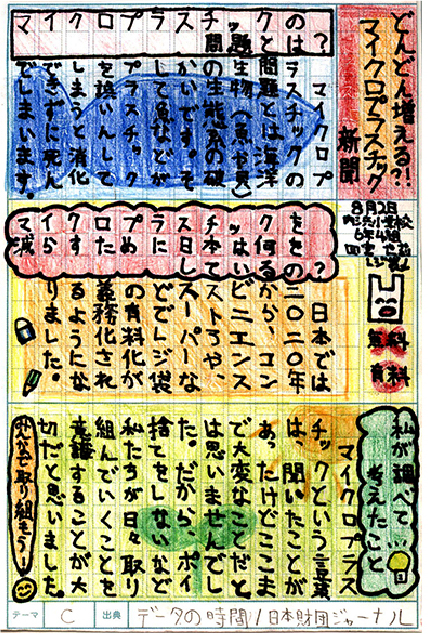 どんどん増える?!
マイクロプラスチック
新聞
8月2日
マイクロプラスチックの
問題とは?
マイクロプ
ラスチックの
問題とは海洋
生物(魚や貝)
の生態系の破
かいです。そ
して魚などが
プラスチック
を誤いんして
しまうと消化
できずに死ん
でしまいます。
無料
有料
マイクロプラスチックを
減らすために日本は何を
しているの?
日本では
二〇二〇年
から、コン
ビニエンス
ストアや、
スーパーな
どでレジ袋
の有料化が
義務化され
るようにな
りました。
私が調べて…
考えたこと
マイクロプラス
チックという言葉
は、聞いたことが
あったけどここま
で大変なことだと
は思いませんでし
た。だから、ポイ
捨てをしないなど
私たちが日々取り
組んでいくことを
意識することが大
切だと思いました。
みんなで取り組もう!
テーマ C 出典 データの時間//日本財団ジャーナル